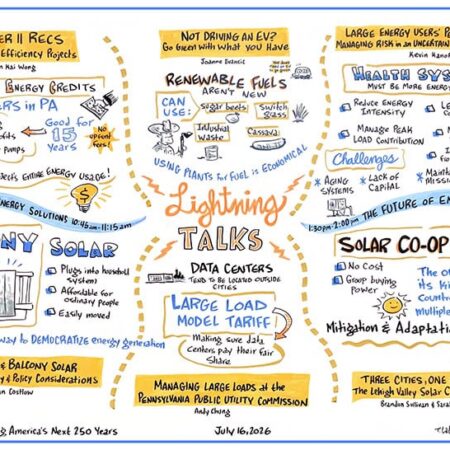 ER II RECS
Efficiency Projects
Kai Wang
ENERGY CREDITS
ERS IN PA
Good for
15
YEARS
No
upfront
fees!
Pumps
ENTIRE ENERGY USAGE!
NOT DRIVING AN EV?
Go Green With What you Have
Joanne Ivancic
RENEWABLE FUELS
AREN'T NEW
CAN
USE:
Sugar beets
Switch
grass
Industrial
Waste
Cassava
USING PLANTS for FUEL is ECONOMICAL
LARGE ENERGY USERS' P
MANAGING RISK IN AN UNCERTAIN
Kevin
HEALTH SYS
MUST BE MORE ENERGY
REDUCE ENERGY
INTENSITY
MANAGE PEAK
LOAD CONTRIBUTION
Challenges
AGING
SYSTEMS
LACK OF
CAPITAL
ENERGY SOLUTIONS 10:45am-11:15am
Lightning
TALKS
1:30pm-2:00pm THE FUTURE OF EN
NY SOLAR
Plugs into household
system
Affordable for
ordinary people
Easily moved
way to DEMOCRATIZE energy generation
DATA CENTERS
TEND TO BE LOCATED OUTSIDE
CITIES
LARGE LOAD
MODEL TARIFF
Making sure data
centers pay their fair
share
SOLAR CO-OP
No Cost
Group buying
Power
The o
its ki
count
multiple
Mitigation & Adaptat
& BALCONY SOLAR
y & Policy Considerations
n Costlow
MANAGING LARGE LOADS at the
PENNSYLVANIA PUBLIC UTILITY COMMISSION
Andy Chung
THREE CITIES, ONE
The Lehigh Valley Solar C
Brandon Sullivan & Sarah
g America's Next 250 Years
July 16, 2026